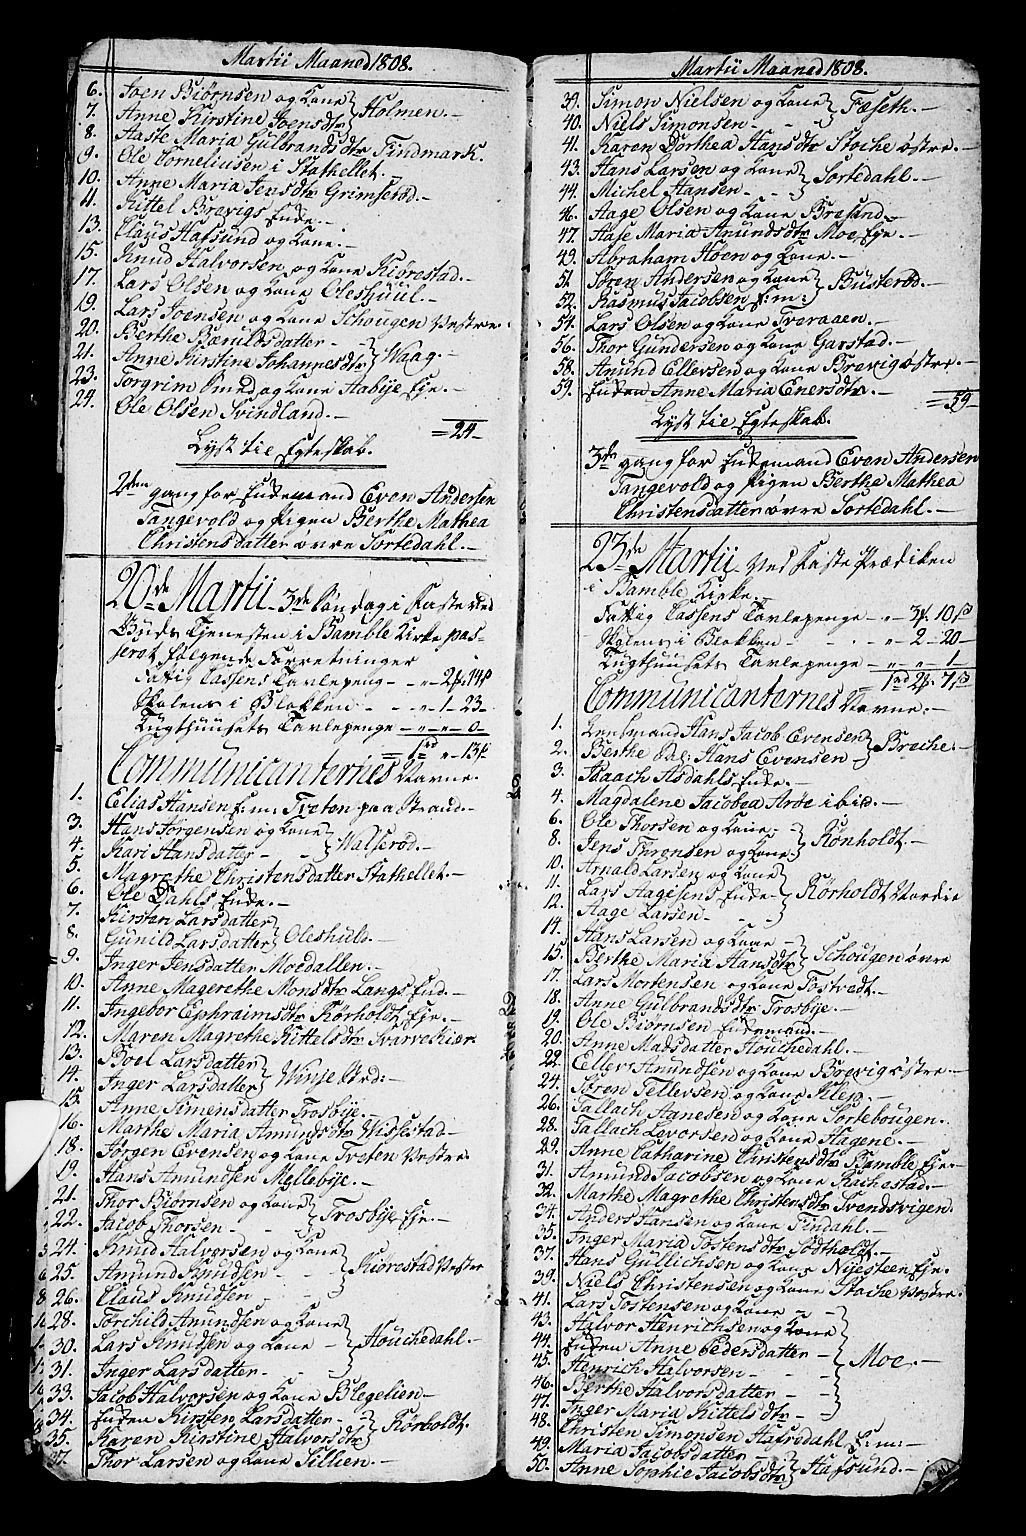 Martii Maaned 1808.
6. Joen Biørnsen og Kone } Holmen.-
7. Anne Kirstine Joensdtr
8. Aaste Maria Gulbrandsdtr Findmark.
9. Ole Corneliusen i Stathellet.
10. Anne Maria Jensdtr Grimserød.-
11. Kittel Brevigs Enke.-
13. Claus Hafsund og Kone.-
15. Knud Halvorsen og Kone Kiørestad.-
17. Lars Olsen og Kone Oleshuul.-
19. Lars Joensen og Kone Schougen Vestre.
20. Berthe Bænildsdatter - } Waag.-
21. Anne Kirstine Johannesdtr
23. Torgrim Smed og Kone Aabije Eje.-
24. Ole Olsen Svindland.-
=24-
Lyst til Egteskab.
2den gang for Enkemand Even Andersen
Tangevold og Pigen Berthe Mathea
Christensdatter øvre Sortedahl.-
20de Martii 3de Søndag i Faste ved
Guds Tjenesten i Bamble Kirke pas-
seret følgende Forretninger
Fattig Cassens Tavlepeng - - „ - 2 14
Skolens i Blokken - - „ - 1 - 23 -
Tugthuusets Tavlepenge - „ - „ - 0 -
= 1 „ - 13
Communicanternes Navne.
1. Elias Hansen E:m: Treten paa Strand.-
3. Hans Jørgensen og Kone } Walserød.-
4. Kari Hansdatter - -
5. Magrethe Christensdatter Stathellet.-
6. Ole Dahls Enke.-
7. Kirsten Larsdatter } Oleshuls.-
8. Gunild Larsdatter
9. Inger Jensdatter Moedallen.-
10. Anne Magrethe Monsdtr Langs End.-
11. Ingebor Ephraimsdtr Rørholdt Eje.-
12. Maren Magrethe Kittelsdtr Tvarreskiær.
13. Boel Larsdatter } Winje
14. Inger Larsdatter
15. Anne Simensdatter Trosbije.-
16. Marthe Maria Amundsdtr Wissestad-
18. Jørgen Evensen og Kone Treten Vestre
19. Hans Amundsen Mellebije.-
21. Thor Biørnsen og Kone } Trosbije Eje.-
22. Jacob Thorsen - -
24. Knud Halvorsen og Kone } Kiørestad Vester
25. Amund Knudsen - -
26. Claus Knudsen - -
28. Torchild Amundsen og Kone } Houchedahl.-
30. Lars Knudsen og Kone -
31. Inger Larsdatter - -
33. Jacob Halvorsen og Kone Blegelien -
34. Enken Kirsten Larsdatter - } Rørholdt
35. Karen Kirstine Halvorsdtr
37. Thor Larsen og Kone Tillien.-
Martii Maaned 1808.
39. Simon Nielsen og Kone } Fæseth.-
40. Niels Simonsen - -
41. Karen Dorthea Hansdtr Stoche østre.-
43. Hans Larsen og Kone } Sortedahl.-
44. Michel Hansen - -
46. Aage Olsen og Kone Bresand.-
47. Aase Maria Anundsdtr Moe Eje.-
49. Abraham Hoen og Kone.-
51. Søren Andersen og Kone } Busterød.-
52. Rasmus Jacobsen E:m:
54. Lars Olsen og Kone Tveraaen.-
56. Thor Gundersen og Kone Garstad.-
58. Anund Ellevsen og Kone Brevig østre.-
59. Enken Anne Maria Enersdtr.-
=59-
Lyst til Egteskab.
3de gang for Enkemand Even Andersen
Tangevold og Pigen Berthe Mathea
Christensdatter øvre Sortedahl.-
23de Martij Ved Faste Prædiken
i Bamble Kirke.
Fattig Cassens Tavlepenge - „ - 3 10
Skolens i Blokken - - „ - 2 - 20 -
Tugthuusets Tavlepenge - „ - „ - 1 -
1 2 7
Communicanternes Navne:-
1. Lensmand Hans Jacob Evensen } Broche.-
2. Berthe Hans Evensen -
3. Isaach Asdahls Enke.-
4. Magdalene Jacobea Arøe ibid.-
6. Ole Thorsen og Kone - } Rønholdt.-
8. Jens Thrensen og Kone
10. Arnald Larsen og Kone } Rørholdt Nordre
11. Lars Aagesens Enke -
12. Aage Larsen - -
14. Hans Larsen og Kone - } Schougen øvre
15. Berthe Maria Hansdtr
17. Lars Mortensen og Kone Tostvedt.-
18. Anne Gulbrandsdtr Trosbije.-
19. Ole Biørnsen Enkemand.-
20. Anne Madsdatter Houchedahl.-
22. Ellev Amundsen og Kone Brevig østre.-
24. Søren Tellevsen og Kone Klep.-
26. Tallach Hanesen og Kone Sortebougen.-
28. Tallach Levorsen og Kone Hagene.-
29. Anne Catharine Christensdtr Bamble Eje.-
31. Amund Jacobsen og Kone Rachestad.-
32. Marthe Magrethe Christensdtr Svendsvigen.
34. Anders Hansen og Kone Findahl.-
35. Inger Maria Tostensdtr Sødtholdt.-
37. Hans Gullichsen og Kone Nijesteen Eje.
39. Niels Christensen og Kone Stoche Vestre.
41. Lars Tostensen og Kone - - } Moe.-
43. Halvor Henrichsen og Kone
44. Enken Anne Pedersdatter -
45. Henrich Halvorsen - -
46. Berthe Halvorsdatter - -
47. Inger Maria Kittelsdtr -
48. Christen Simonsen Hafredahl E:m:-
49. Maria Jacobsdatter - } Hafsund.-
50. Anne Sophie Jacobsdtr